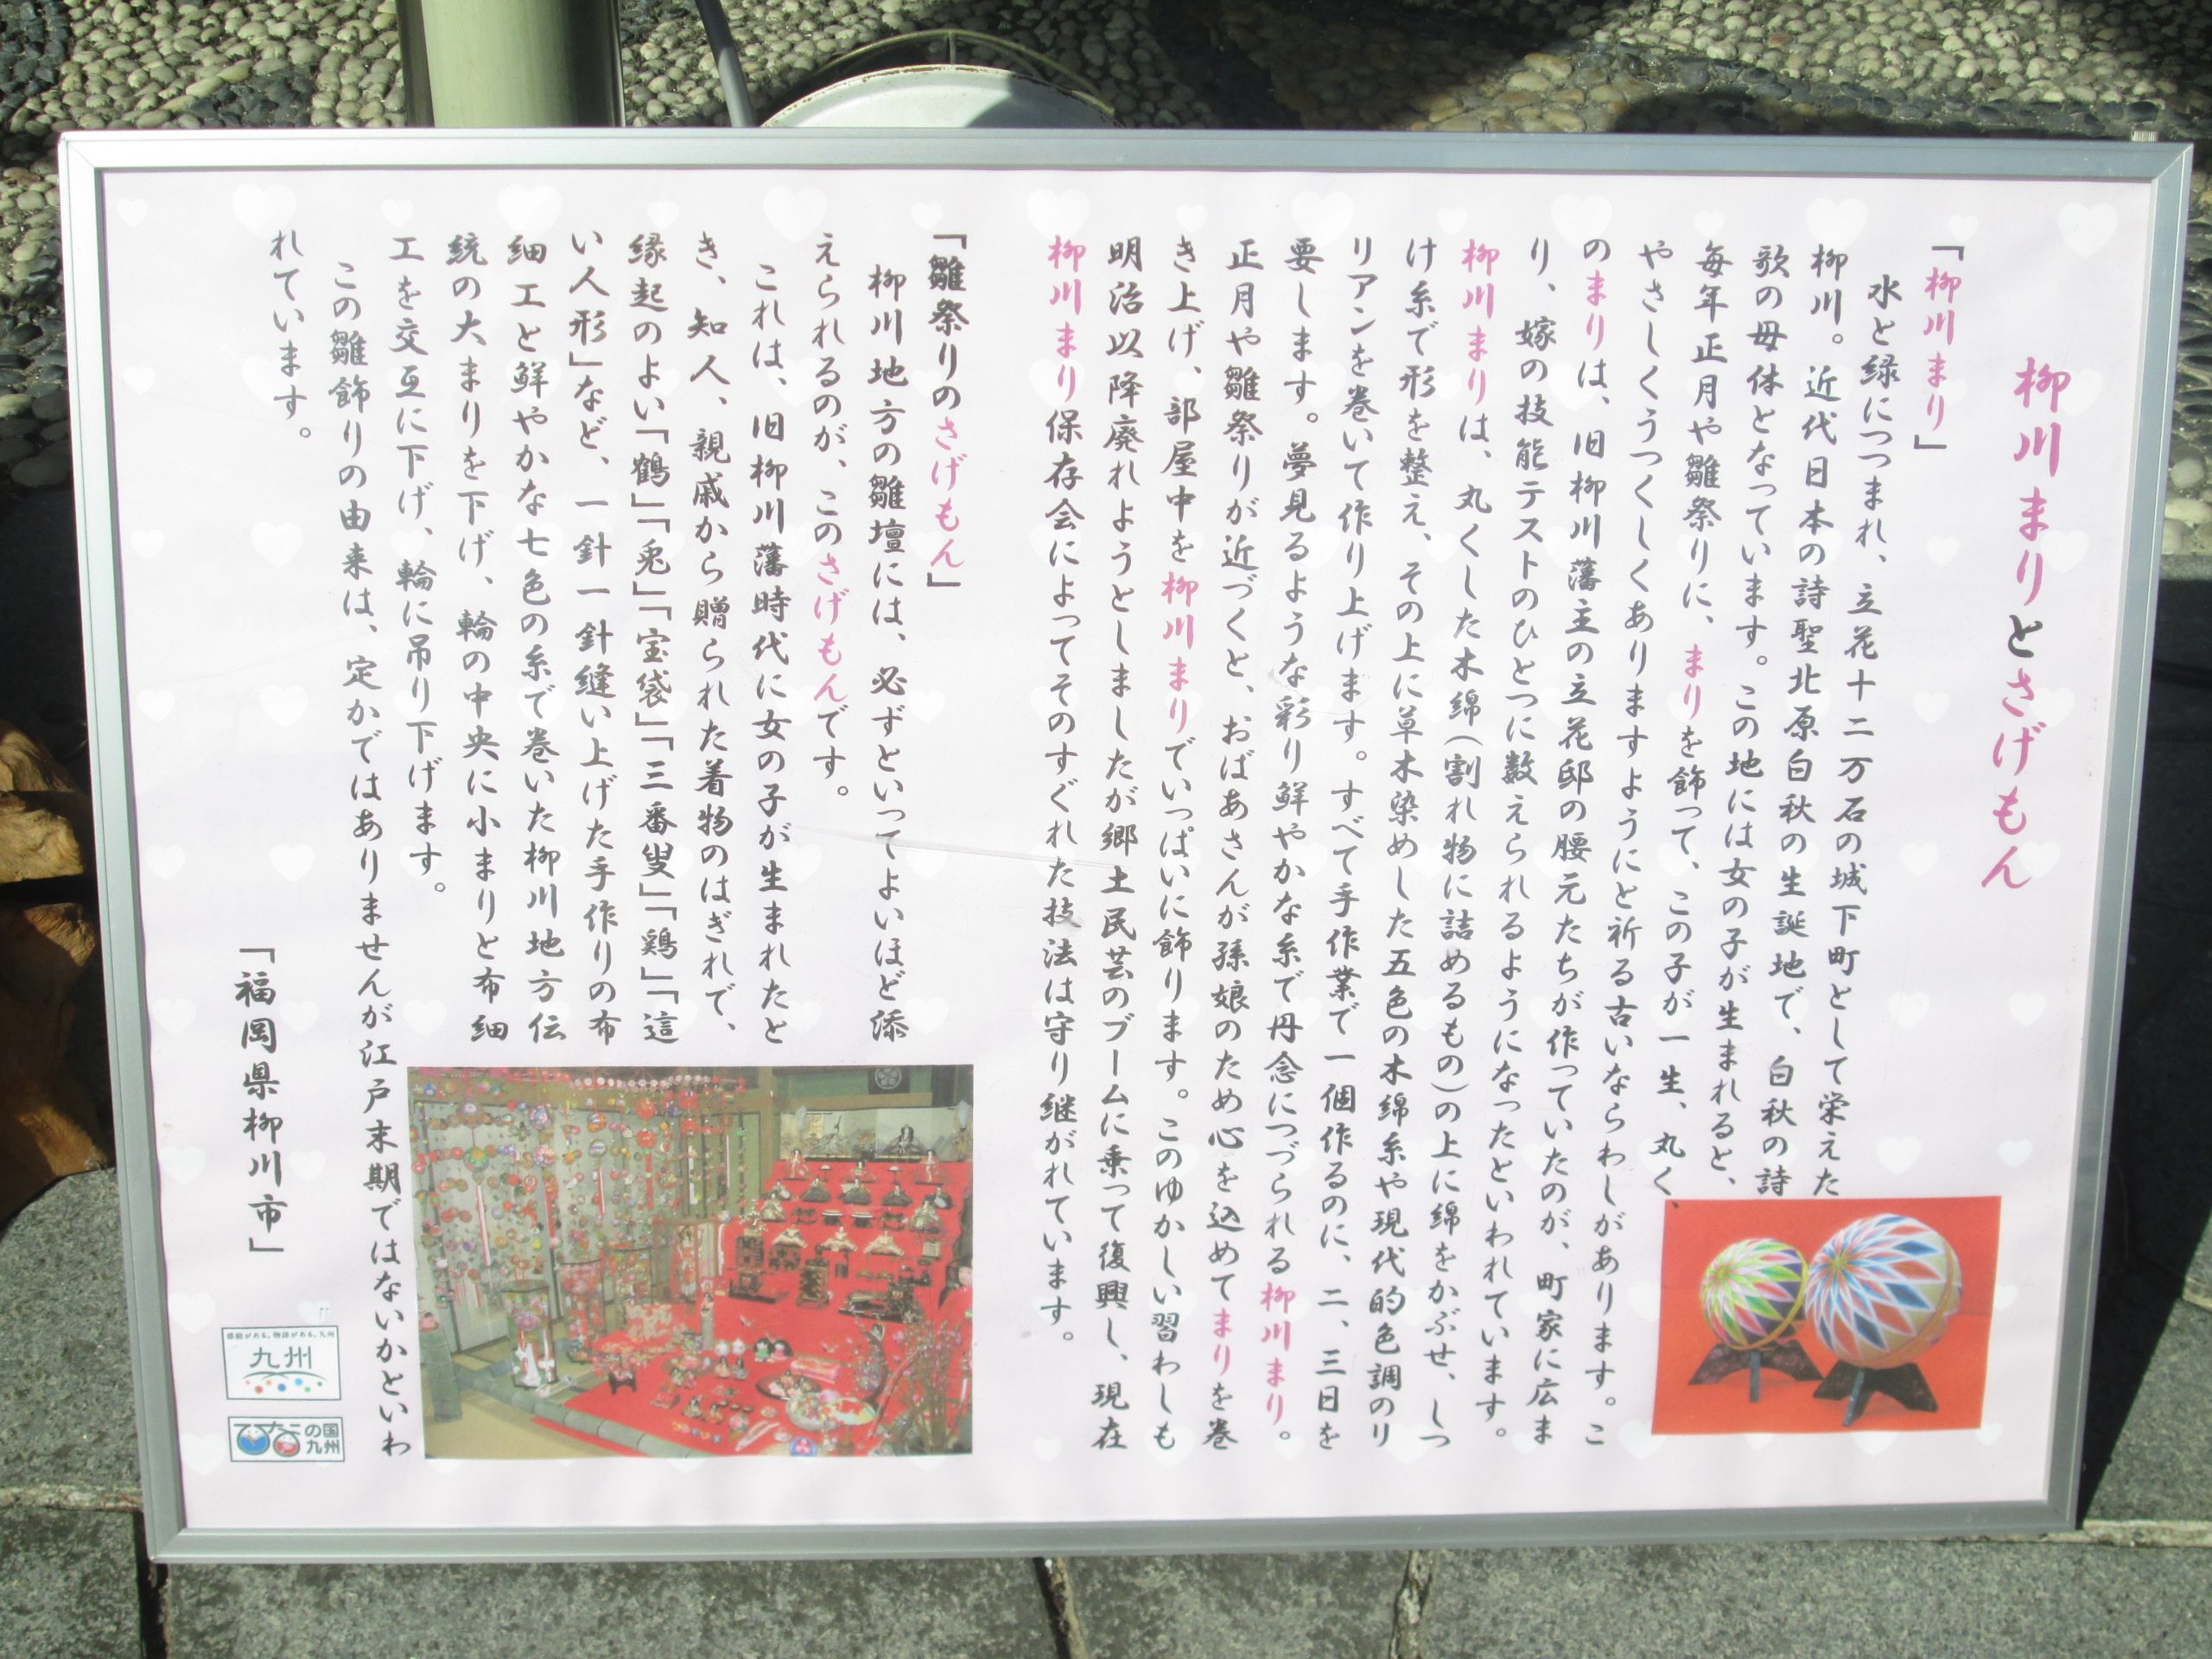 柳川まりとさげもん
「柳川まり」
水と緑につつまれ、立花十二万石の城下町として栄えた
柳川。近代日本の詩聖北原白秋の生誕地で、白秋の詩
歌の母体となっています。この地には女の子が生まれると、
毎年正月や雛祭りに、まりを飾って、この子が一生、丸く、
やさしくうつくしくありますようにと祈る古いならわしがあります。こ
のまりは、旧柳川藩主の立花邸の腰元たちが作っていたのが、町家に広ま
り、嫁の技能テストのひとつに数えられるようになったといわれています。
柳川まりは、丸くした木綿(割れ物に詰めるもの)の上に綿をかぶせ、しつ
け糸で形を整え、その上に草木染めした五色の木綿糸や現代的色調のリ
リアンを巻いて作り上げます。すべて手作業で一個作るのに、二、三日を
要します。夢見るような彩り鮮やかな糸で丹念につづられる柳川まり。
正月や雛祭りが近づくと、おばあさんが孫娘のため心を込めてまりを巻
き上げ、部屋中を柳川まりでいっぱいに飾ります。このゆかしい習わしも
明治以降廃れようとしましたが郷土民芸のブームに乗って復興し、現在
柳川まり保存会によってそのすぐれた技法は守り継がれています。
「雛祭りのさげもん」
柳川地方の雛壇には、必ずといってよいほど添
えられるのが、このさげもんです。
これは、旧柳川藩時代に女の子が生まれたと
き、知人、親戚から贈られた着物のはぎれで、
縁起のよい「鶴」「兎」「宝袋」「三番叟」「鶏」「這
い人形」など、一針一針縫い上げた手作りの布
細工と鮮やかな七色の糸で巻いた柳川地方伝
統の大まりを下げ、輪の中央に小まりと布細
工を交互に下げ、輪に吊り下げます。
この雛飾りの由来は、定かではありませんが江戸末期ではないかといわ
れています。
「福岡県柳川市」
感動がある。物語がある。九州
九州
ひなたこの国
九州